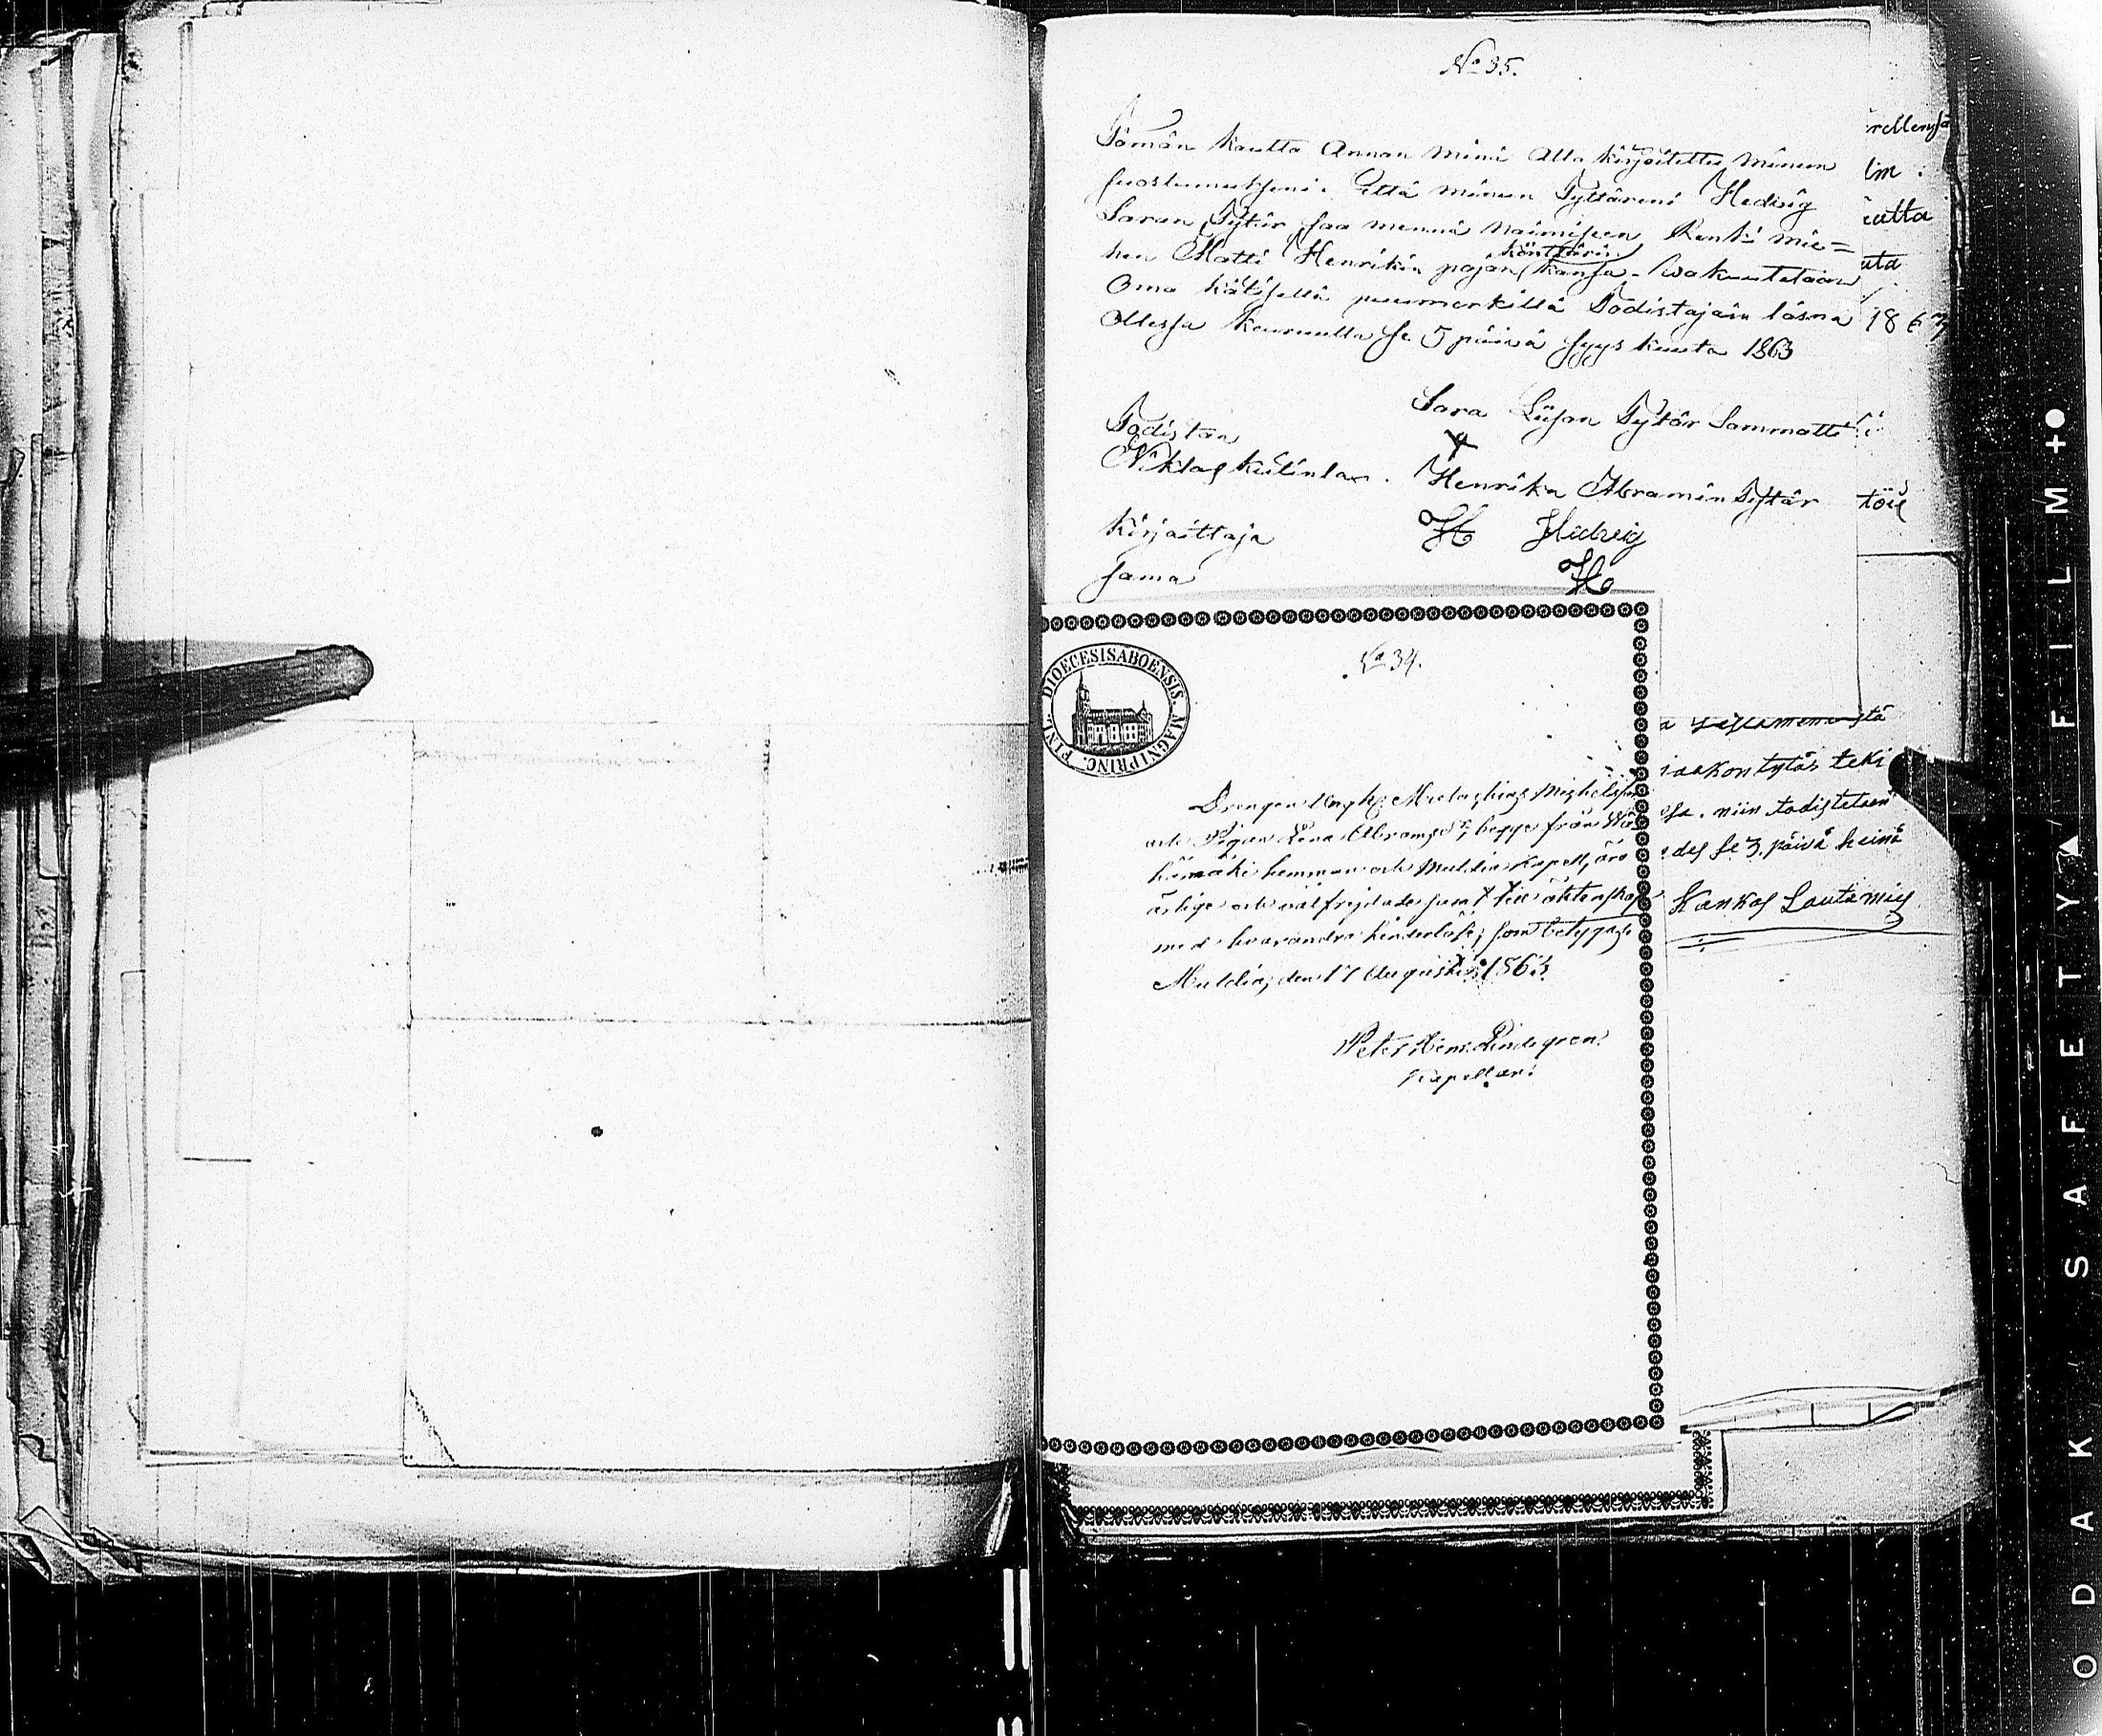 No 35.
Tämän kautta Annan minä alla kirjoitettu minun
suostumukseni. Että minun Tyttäreni Hedvig
Saran Tytär saa mennä naimiseen Renki mie=
hen Matti Henrikin pojan könttärin kansa. wakuutetaan
Oma kätisellä puumerkillä Todistajain läsnä
Ollessa keuruulla se 5 päivä syys kuuta 1863
Sara Liisan Tytär Sammatti
Todistan
Niklas
Henrika Abramin Tytär
Kirjoittaja
H Hedvig
sama
H
rellensä
lim
autta
uta
1863
töis
No 34.
DIOECESIS ABOENSIS. MAGNI PRINC. FINL.
Drengen Michelss
och Pigan Lena Abramsdr, begge från
kämäki hemman och Muldia Kapell, äro
ärlige och välfrejdade samt till äktenskap
med hvarandra hinderlöse; som betygas
Muldia, den 17 Augusti 1863.
Peter Henr. Lindegren
Kapellan.
a
jaakon tytär teki
sa. niin todistetaan
des se 3. päivä heinä
Kankas Lautamies
KODAK SAFETY FILM